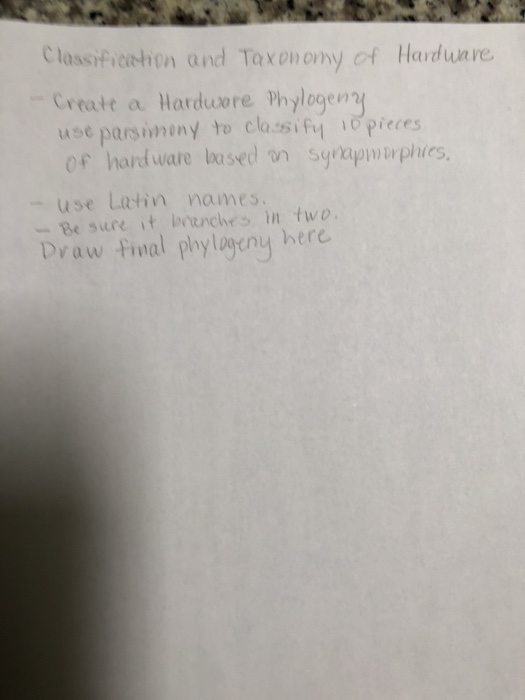 Classification and Taxonomy of Hardware
- Create a Hardware Phylogeny
use parsimony to classify 10 pieces
of hardware based on synapmorphies.
- use Latin names.
- Be sure it branches in two.
Draw final phylogeny here